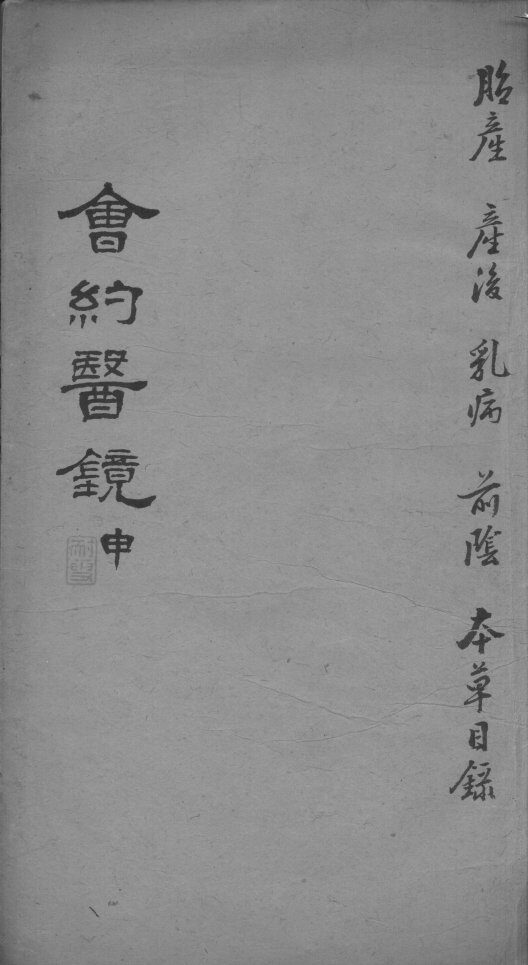 胎產 產後 乳病 前陰 本草目錄
會約醫鏡 申